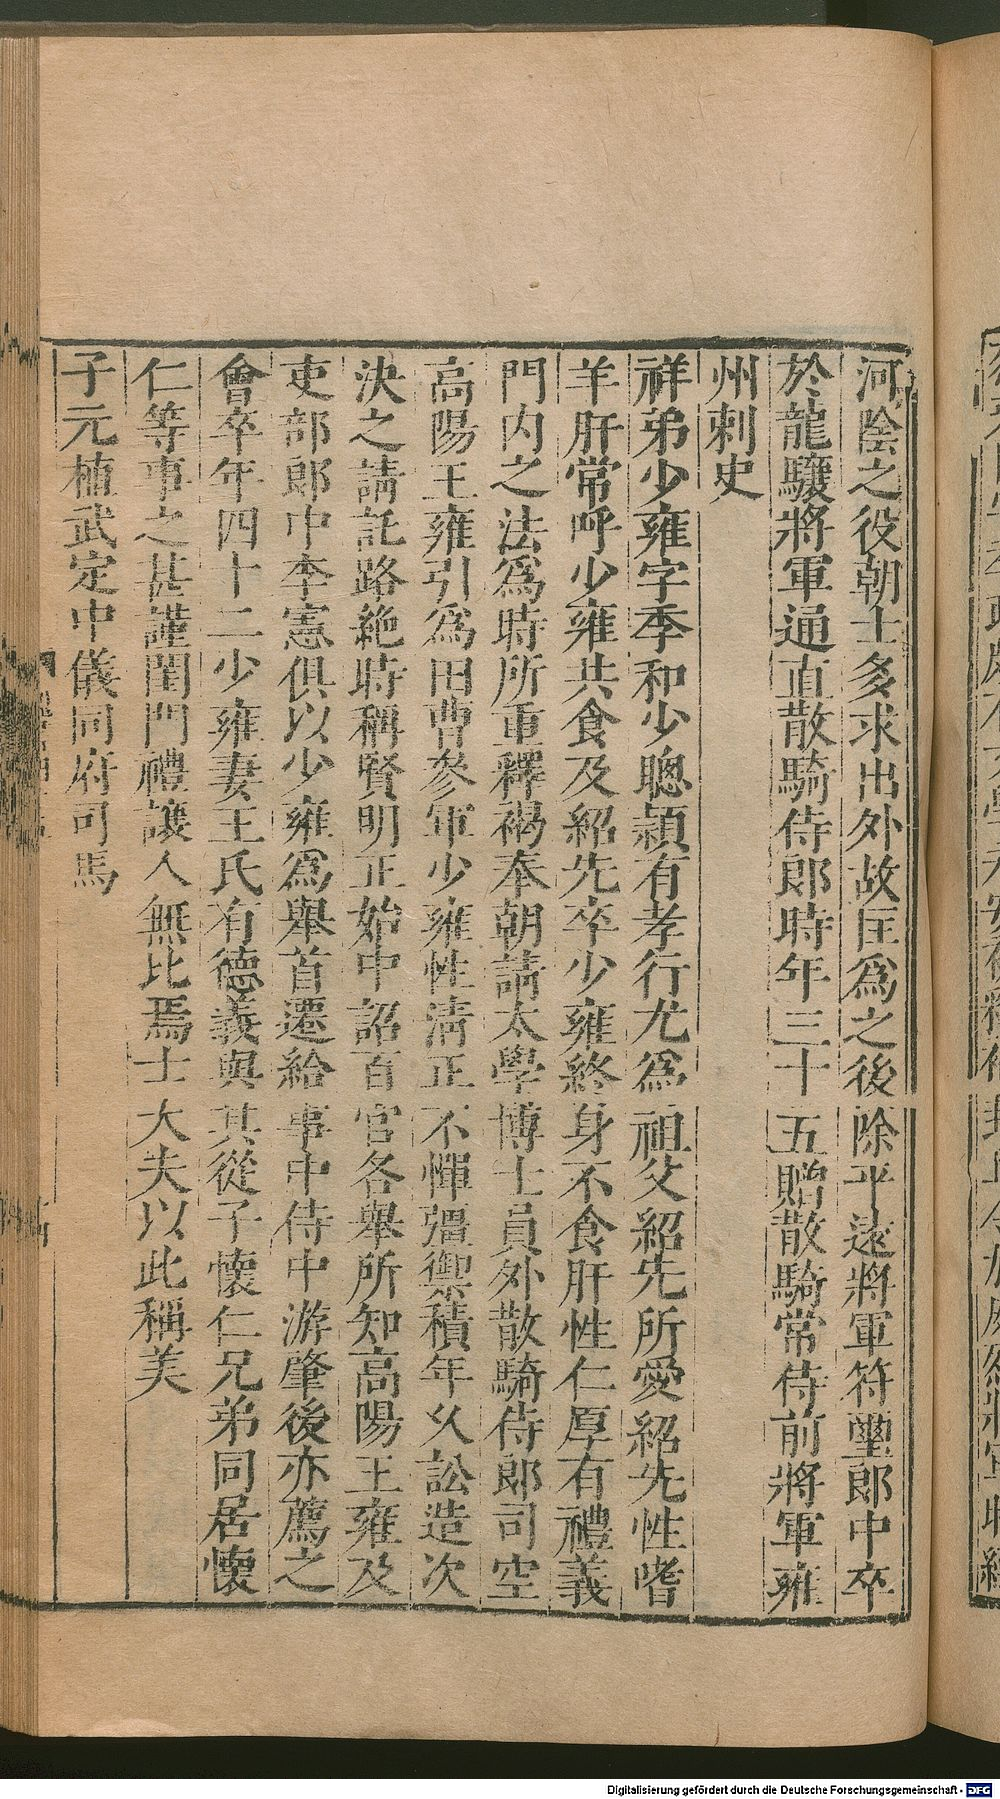 河陰之役朝士多求出外故匡爲之後除平遠將軍符璽郎中卒
於龍驤將軍通直散騎侍郎時年三十五贈散騎常侍前將軍雍
州刺史
祥弟少雍字季和少聰頴有孝行尤爲祖父紹先所愛紹先性嗜
羊肝常呼少雍共食及紹先卒少雍終身不食肝性仁厚有禮義
門内之法爲時所重釋褐奉朝請太學博士員外散騎侍郎司空
高陽王雍引爲田曹參軍少雍性清正不憚彊禦積年乆訟造次
決之請託路絶時稱賢明正始中詔百官各舉所知高陽王雍及
吏部郎中李憲俱以少雍爲舉首遷給事中侍中游肇後亦薦之
會卒年四十二少雍妻王氏有德義與其從子懷仁兄弟同居懷
仁等事之甚謹閨門禮讓人無比焉士大夫以此稱美
子元植武定中儀同府司馬
Digitalisierung gefördert durch die Deutsche Forschungsgemeinschaft - DFG